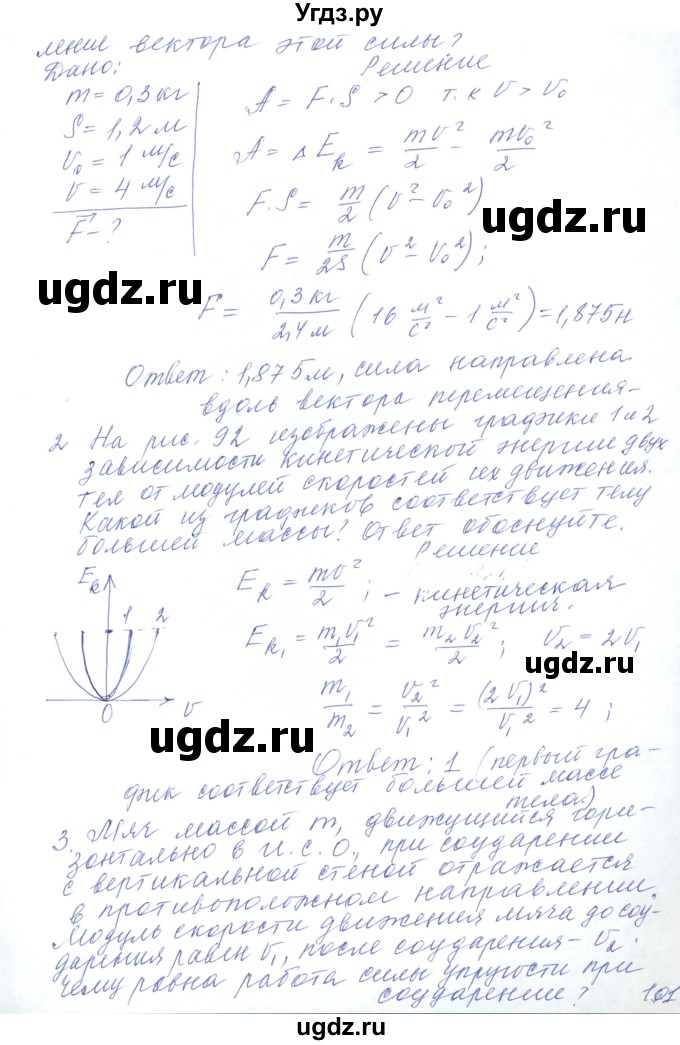 Угдз.ру
ление вектора этой силы?
Дано: Решение
m = 0,3 кг
S = 1,2 м
v₀ = 1 м/с
v = 4 м/с
F⃗ - ?
A = F · S > 0 т.к v > v₀
A = Δ E_k = mv²/2 - mv₀²/2
F · S = m/2 (v² - v₀²)
F = m/2S (v² - v₀²);
F = 0,3 кг/2,4 м (16 м²/с² - 1 м²/с²) = 1,875 н
ugdz.ru
ugdz.ru
Ответ: 1,875 м, сила направлена
вдоль вектора перемещения-
2 На рис. 92 изображены графики 1 и 2
зависимости кинетической энергии двух
тел от модулей скоростей их движения.
Какой из графиков соответствует телу
большей массы? Ответ обоснуйте.
Решение
E_k 1 2
0 v
E_k = mv²/2; - кинетическая
энергия.
E_k₁ = m₁v₁²/2 = m₂v₂²/2; v₂ = 2v₁
m₁/m₂ = v₂²/v₁² = (2v₁)²/v₁² = 4;
ugdz.ru
ugdz.ru
Ответ: 1 (первый гра-
фик соответствует большей массе
тела.)
3. Мяч массой m, движущийся гори-
зонтально в и.с.о., при соударении
с вертикальной стеной отражается
в противоположном направлении.
Модуль скорости движения мяча до соу-
дарения равен v₁, после соударения - v₂.
Чему равна работа силы упругости при
соударении?
101
ugdz.ru
ugdz.ru
ugdz.ru